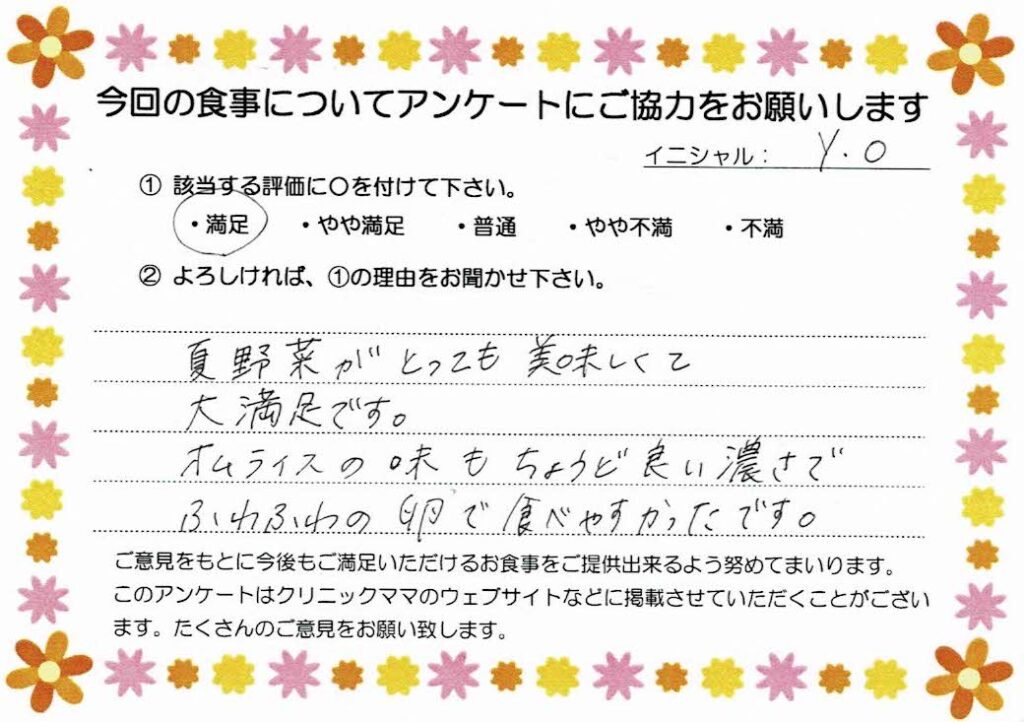 今回の食事についてアンケートにご協力をお願いします
イニシャル： Y.O
① 該当する評価に〇を付けて下さい。
・満足 ・やや満足 ・普通 ・やや不満 ・不満
② よろしければ、①の理由をお聞かせ下さい。
夏野菜がとっても美味しくて
大満足です。
オムライスの味もちょうど良い濃さで
ふわふわの卵で食べやすかったです。
ご意見をもとに今後もご満足いただけるお食事をご提供出来るよう努めてまいります。
このアンケートはクリニックママのウェブサイトなどに掲載させていただくことがござい
ます。たくさんのご意見をお願い致します。